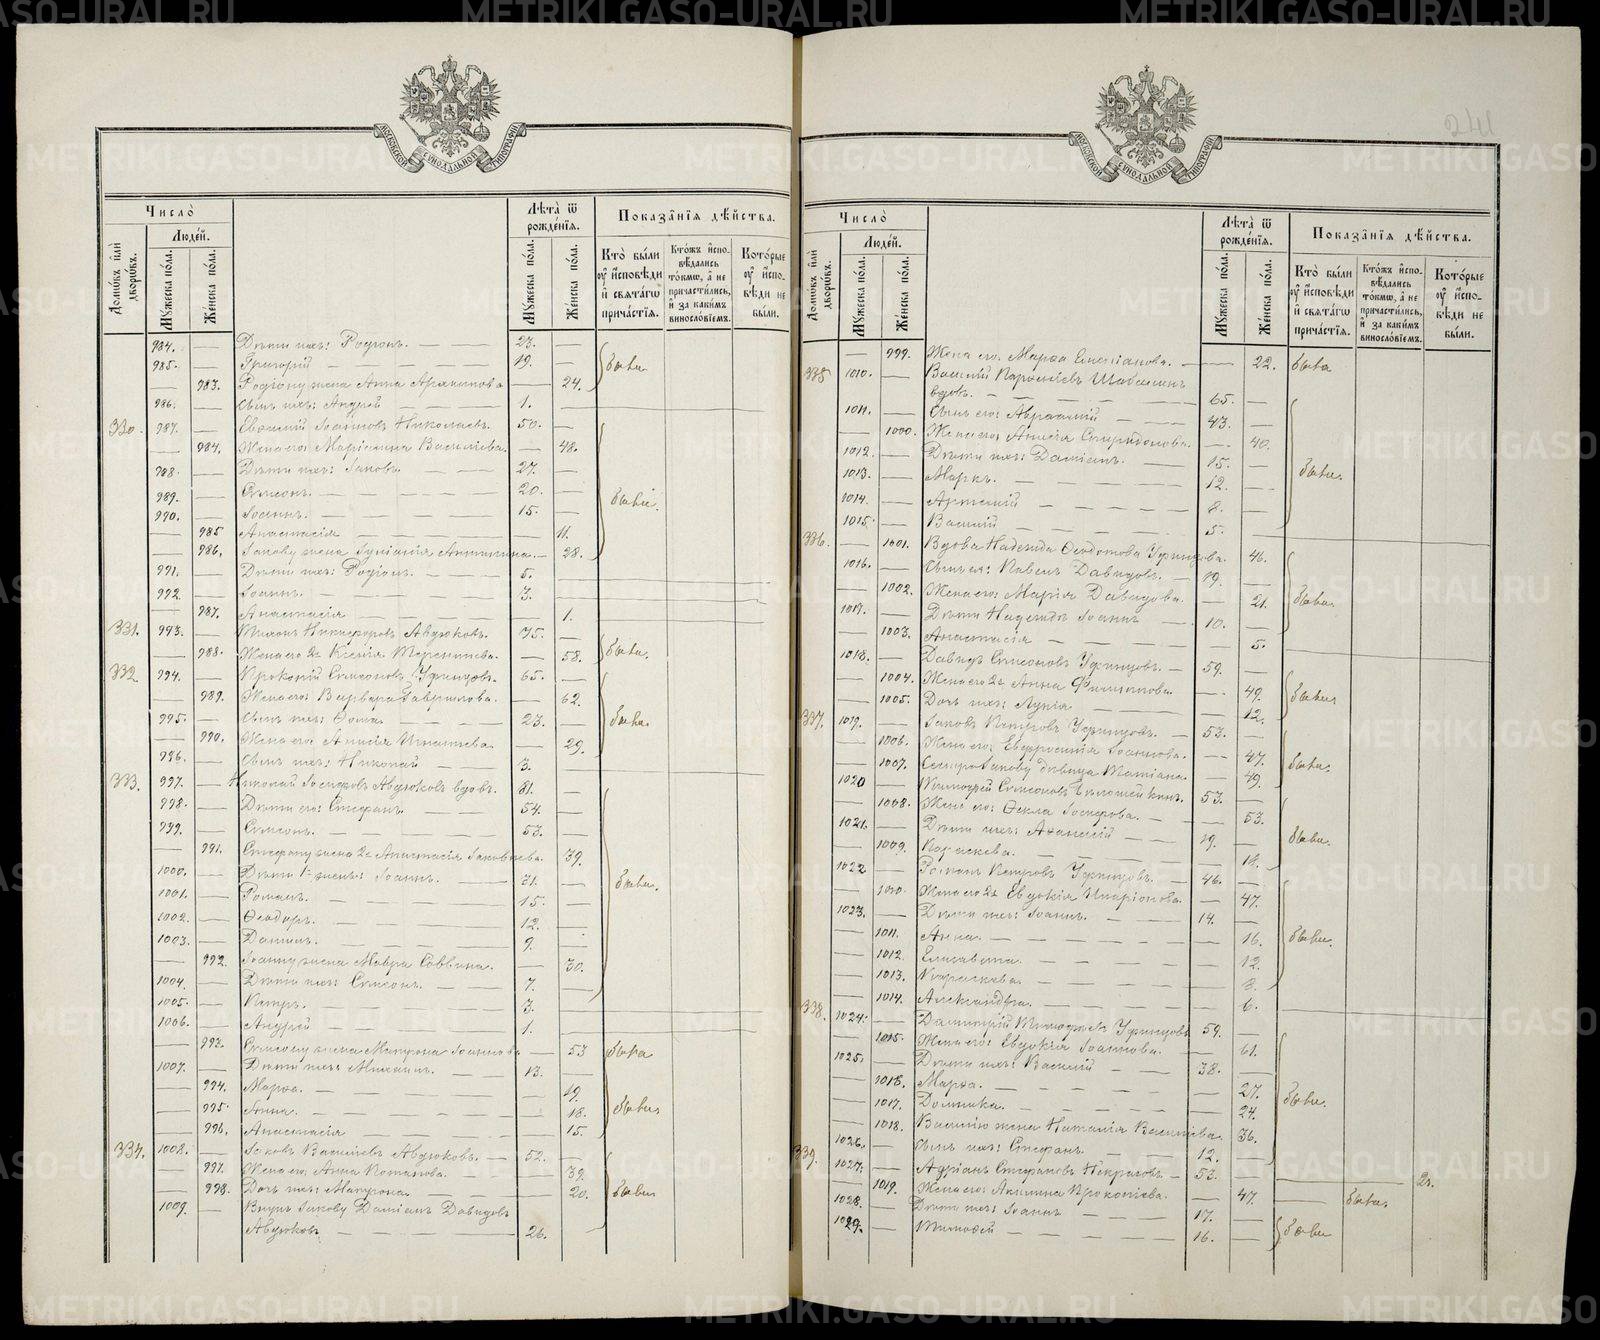 METRIKI.GASO-URAL.RU
МОСКОВСКОЙ СѴНОДАЛЬНОЙ ТИПОГРАФІИ
Число̀
Людéй.
Домѡвъ и҆лѝ дворѡвъ.
Мꙋ́жеска по́ла.
Же́нска по́ла.
Лѣ̑та ѿ рождéнїѧ.
Мꙋ́жеска по́ла.
Же́нска по́ла.
Показа̑нїѧ дѣ́йства.
Кто̀ бы́ли ᲂу҆ и҆́сповѣди и҆ свѧта́гѡ прича́стїѧ.
Кто́жъ и҆спо- вѣ́дались то́кмѡ, а҆ не причасти́лись, и҆ за каки́мъ винослóвїемъ.
Кото́рые ᲂу҆ и҆́спо- вѣди не бы́ли.
984. — Дѣти ихъ: Родіонъ. — 23. —
985. — Григорій — 19. — были
— 983. Родіону жена Анна — 24.
986. — Сынъ ихъ: Андрей — 1. —
330. 987. — Евѳимій Іоанновъ Николаевъ. 50. —
— 984. Жена его: Маріамна Василіева. — 48.
988. — Дѣти ихъ: Іаковъ — 27. —
989. — Симеонъ. — 20. — были.
990. — Іоаннъ. — 15. —
— 985 Анастасія — 11.
— 986. Іакову жена — 28.
991. — Дѣти ихъ: Родіонъ. — 5. —
992. — Іоаннъ. — 3. —
— 987. Анастасія — 1.
331. 993. — Тихонъ Никифоровъ Авдюковъ. 75. —
— 988. Жена его 2я Ксенія Терентіева. — 58. были.
332 994. — Прокопій Симеоновъ Уфинцовъ. 65. —
— 989. Жена его: Варвара Гавриилова. — 62.
995. — Сынъ ихъ: Ѳома — 23. — были.
— 990. Жена его: Анисія Игнатіева — 29.
996. — Сынъ ихъ: Николай — 3. —
333. 997. — Николай Іосифовъ Авдюковъ вдовъ. 81. —
998. — Дѣти его: Стефанъ. 54. —
999. — Симеонъ. — 53. —
— 991. Стефану жена 2я Анастасія Іаковлева. 39.
1000. — Дѣти 1й жены: Іоаннъ. 31. —
1001. — Романъ. — 15. — были.
1002. — Ѳеодоръ. — 12. —
1003. — Даніилъ. — 9. —
— 992. Іоанну жена Мавра Саввина. — 30.
1004. — Дѣти ихъ: Симеонъ. — 7. —
1005. — Петръ. — 3. —
1006. — Андрей — 1. —
— 993. Симеону жена Матрона Іоаннова — 53 была
1007. — Дѣти ихъ: Михаилъ. — 13. —
— 994. Марѳа. — 19.
— 995. Анна. — 18. были
— 996. Анастасія — 15.
334. 1008. — Іаковъ Василіевъ Авдюковъ. — 52. —
— 997. Жена его: Анна Потапова. — 39.
— 998. Дочь ихъ: Матрона — 20. были
1009. — Внукъ Іакову Даміанъ Давидовъ
Авдюковъ — 26.
241
Число̀
Людéй.
Домѡвъ и҆лѝ дворѡвъ.
Мꙋ́жеска по́ла.
Же́нска по́ла.
Лѣ̑та ѿ рождéнїѧ.
Мꙋ́жеска по́ла.
Же́нска по́ла.
Показа̑нїѧ дѣ́йства.
Кто̀ бы́ли ᲂу҆ и҆́сповѣди и҆ свѧта́гѡ прича́стїѧ.
Кто́жъ и҆спо- вѣ́дались то́кмѡ, а҆ не причасти́лись, и҆ за каки́мъ винослóвїемъ.
Кото́рые ᲂу҆ и҆́спо- вѣди не бы́ли.
— 999. Жена его: Марѳа Емеліанова. — 22. была
335 1010. — Василій Парѳеніевъ
вдовъ. — 65. —
1011. — Сынъ его: Авраамій 43. —
— 1000. Жена его: Анисія Спиридонова. — 40.
1012. — Дѣти ихъ: Даміанъ. — 15. —
1013. — Маркъ. — 12. — были.
1014. — Артемій — 8. —
1015. — Василій — 5. —
336. — 1001. Вдова Надежда Ѳеодотова Уфинцова. 46.
1016. — Сынъ ея: Павелъ Давидовъ. — 19. —
— 1002. Жена его: Марія Давидова. — 21. были
1017. — Дѣти Надежды: Іоаннъ — 10. —
— 1003. Анастасія — 5.
1018. — Давидъ Симеоновъ Уфинцовъ. — 59. —
— 1004. Жена его 2я Анна Филиппова. — 49. были
— 1005. Дочь ихъ: Лукія — 12.
337. 1019. — Іаковъ Петровъ Уфинцовъ. — 53. —
— 1006. Жена его: Евфросинія Іоаннова. — 47. были.
— 1007. Сестра Іакову дѣвица Татіана. — 49.
1020 — Тимоѳей Симеоновъ 53. —
— 1008. Жена его: Ѳекла Іосифова. — 53.
1021. — Дѣти ихъ: Аѳанасій — 19. — были.
— 1009. Параскева. — 14.
1022 — Романъ Петровъ Уфинцовъ. — 46. —
— 1010. Жена его 2я Евдокія Иларіонова. — 47.
1023. — Дѣти ихъ: Іоаннъ. — 14. —
— 1011. Анна. — 16. были.
— 1012. Елисавета. — 12.
— 1013. Параскева. — 8.
— 1014. Александра. — 6.
338. 1024. — Димитрій Тимоѳеевъ Уфинцовъ 59. —
— 1015. Жена его: Евдокія Іоаннова. — 61.
1025. — Дѣти ихъ: Василій — 38. —
— 1016. Марѳа. — 27. были.
— 1017. Домника. — 24.
— 1018. Василію жена Наталія Василіева. 36.
1026. — Сынъ ихъ: Стефанъ. — 12. —
339. 1027. — Адріанъ Стефановъ Некрасовъ — 53. — 2г.
— 1019. Жена его: Акилина Прокопіева. — 47. была.
1028. — Дѣти ихъ: Іоаннъ — 17. —
1029. — Тимоѳей — 16. — были